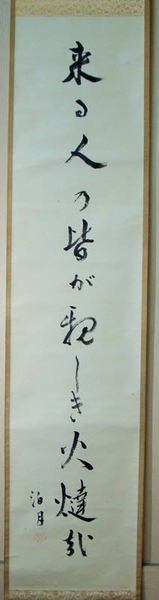 来る人の皆が親しき火燵哉
泊月